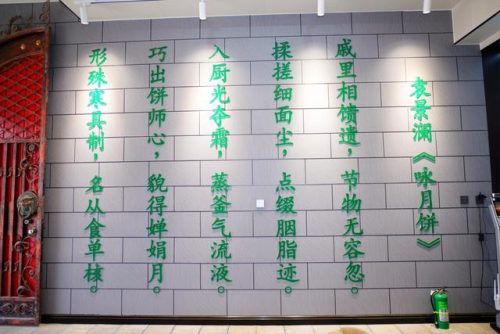 袁景澜《咏月饼》
戚里相馈遗，节物无容忽。
揉搓细面尘，点缀胭脂迹。
入厨光夺霜，蒸釜气流液。
巧出饼师心，貌得婵娟月。
形殊寒具制，名从食单核。